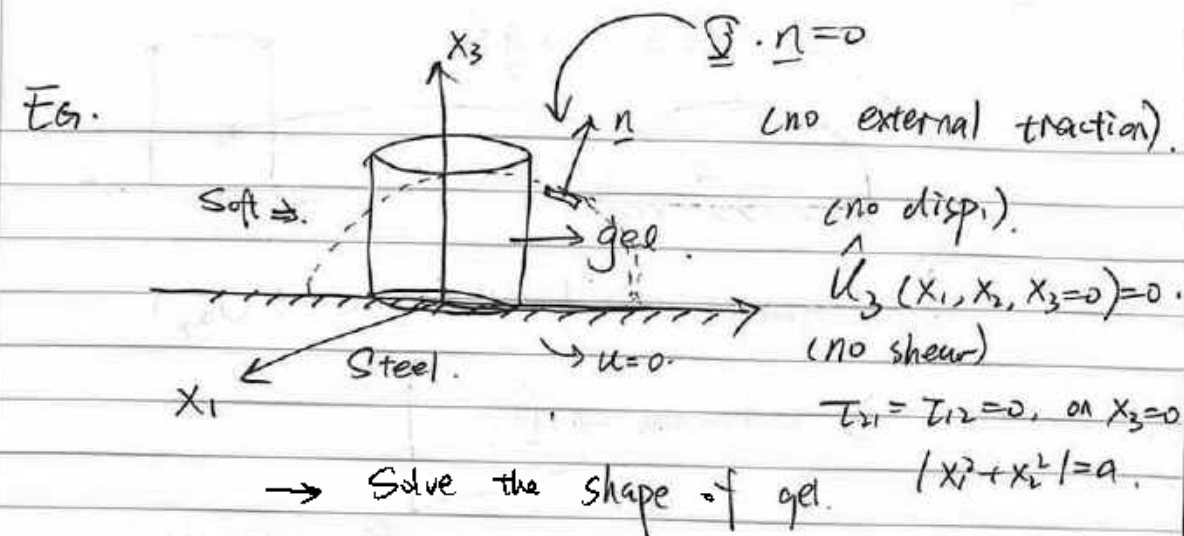 σ · n = 0
X₃
EG.
n
(no external traction).
Soft ⇒.
gel.
(no disp.).
û₃ (X₁, X₂, X₃=0)=0.
Steel.
→ u=0.
(no shear)
X₁
τ₂₁ = τ₁₂ = 0, on X₃=0
|X₁²+X₂²|=a.
→ Solve the shape of gel.